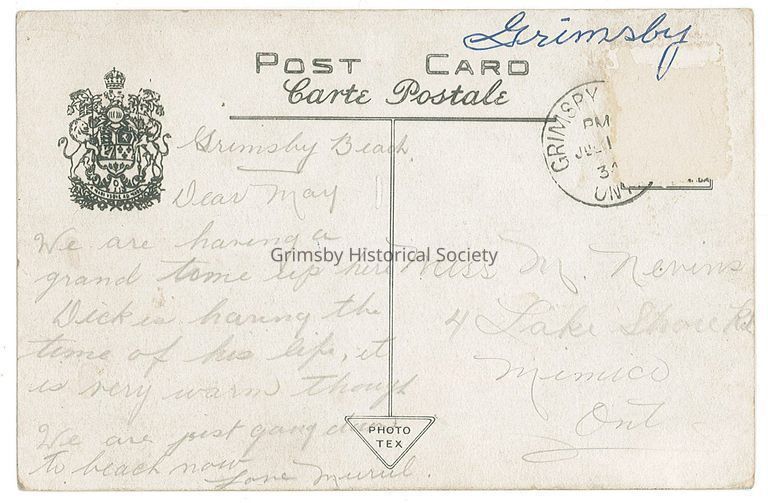 Grimsby
POST CARD
Carte Postale
GRIMSBY
PM
JUL 1
31
ONT
Grimsby Beach
Dear May
We are having a
grand time up here
Dick is having the
time of his life, it
is very warm though
We are just going down
to beach now
Love Muriel.
Grimsby Historical Society
Miss M. Nevins
4 Lake Shore Rd
Mimico
Ont
PHOTO
TEX